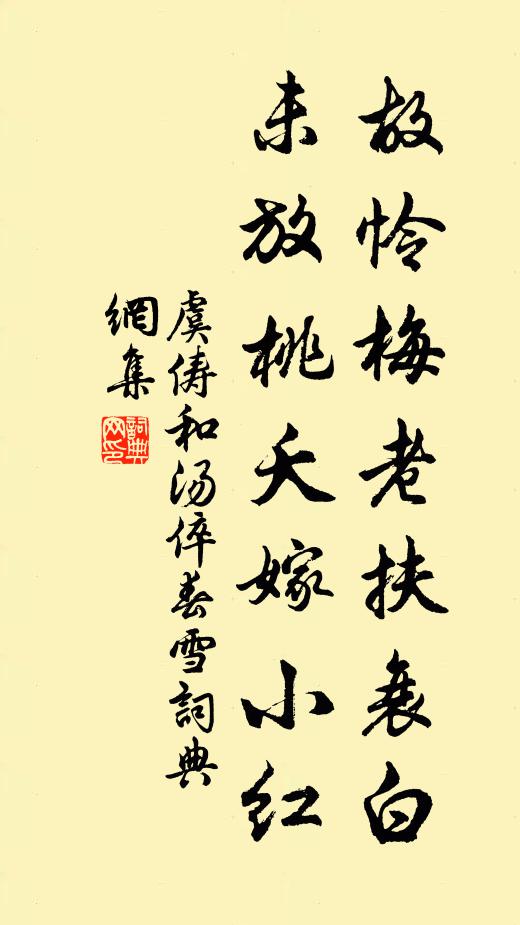 故怜梅老扶衰白
未放桃夭嫁小红
虞俦和汤倅春雪詞典
網集
詞典
网印